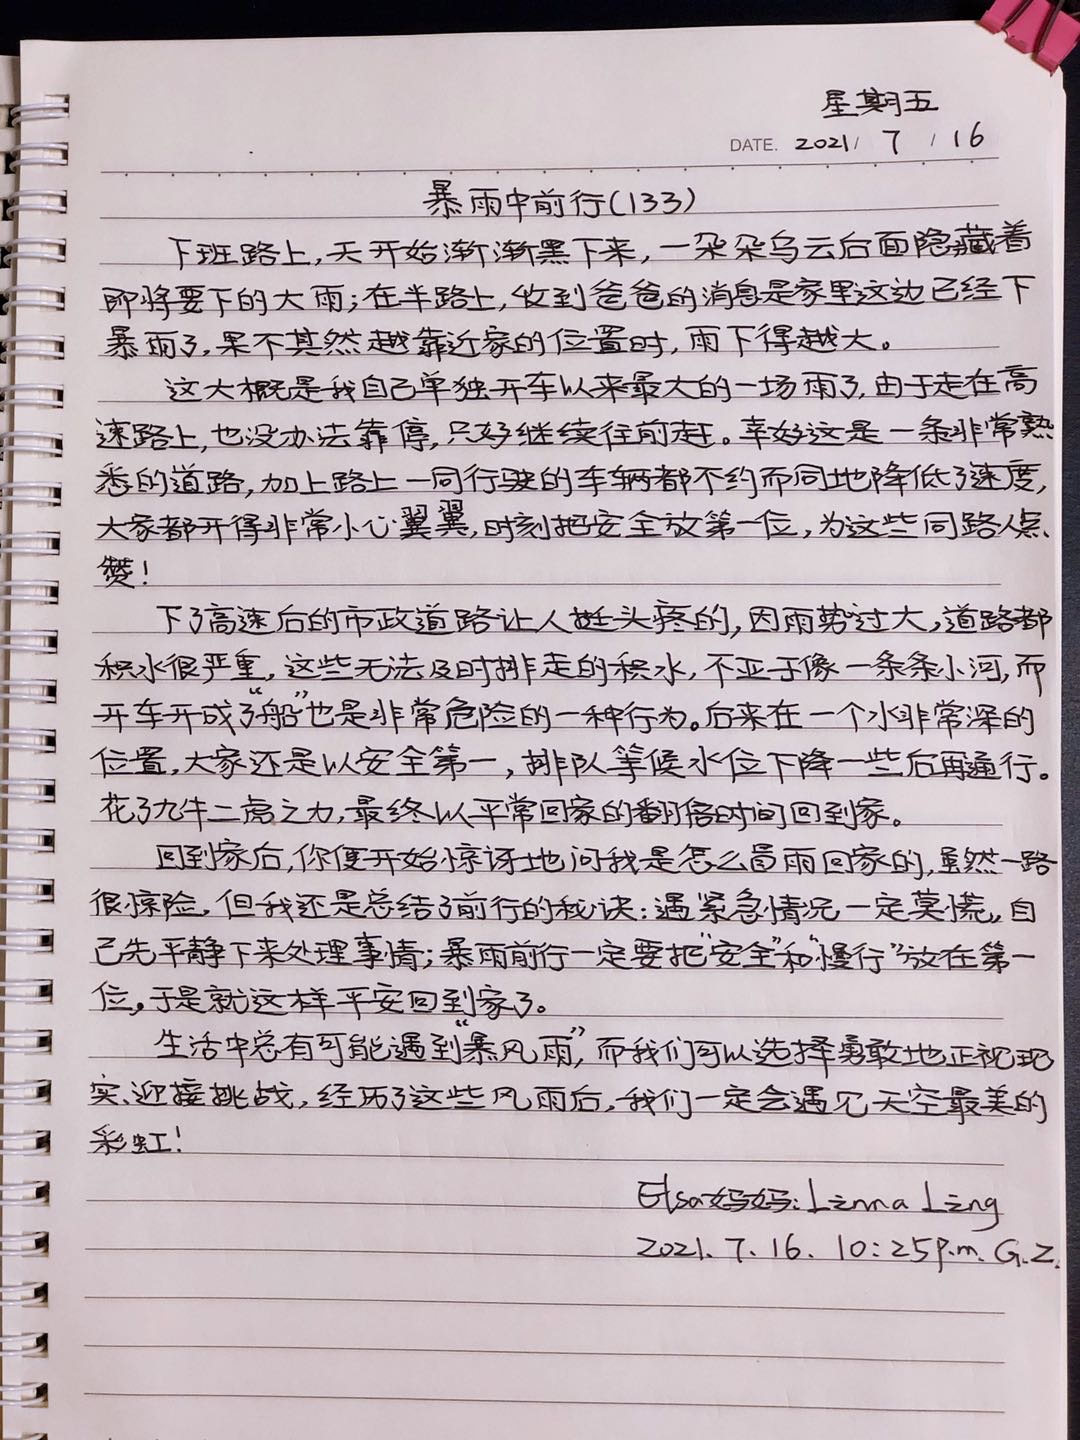 星期五
DATE. 2021/ 7 / 16
暴雨中前行(133)
下班路上,天开始渐渐黑下来,一朵朵乌云后面隐藏着
即将要下的大雨;在半路上,收到爸爸的消息是家里这边已经下
暴雨了,果不其然越靠近家的位置时,雨下得越大。
这大概是我自己单独开车以来最大的一场雨了,由于走在高
速路上,也没办法靠停,只好继续往前赶。幸好这是一条非常熟
悉的道路,加上路上一同行驶的车辆都不约而同地降低了速度,
大家都开得非常小心翼翼,时刻把安全放第一位,为这些同路人点
赞!
下了高速后的市政道路让人挺头疼的,因雨势过大,道路都
积水很严重,这些无法及时排走的积水,不亚于像一条条小河,而
开车开成了“船”也是非常危险的一种行为。后来在一个水非常深的
位置,大家还是以安全第一,排队等候水位下降一些后再通行。
花了九牛二虎之力,最终以平常回家的翻倍时间回到家。
回到家后,你便开始惊讶地问我是怎么冒雨回家的,虽然一路
很惊险,但我还是总结了前行的秘诀:遇紧急情况一定莫慌,自
己先平静下来处理事情;暴雨前行一定要把“安全”和“慢行”放在第一
位,于是就这样平安回到家了。
生活中总有可能遇到“暴风雨”,而我们可以选择勇敢地正视现
实、迎接挑战,经历了这些风雨后,我们一定会遇见天空最美的
彩虹!
Elsa妈妈:Linna Ling
2021.7.16. 10:25p.m. G.Z.